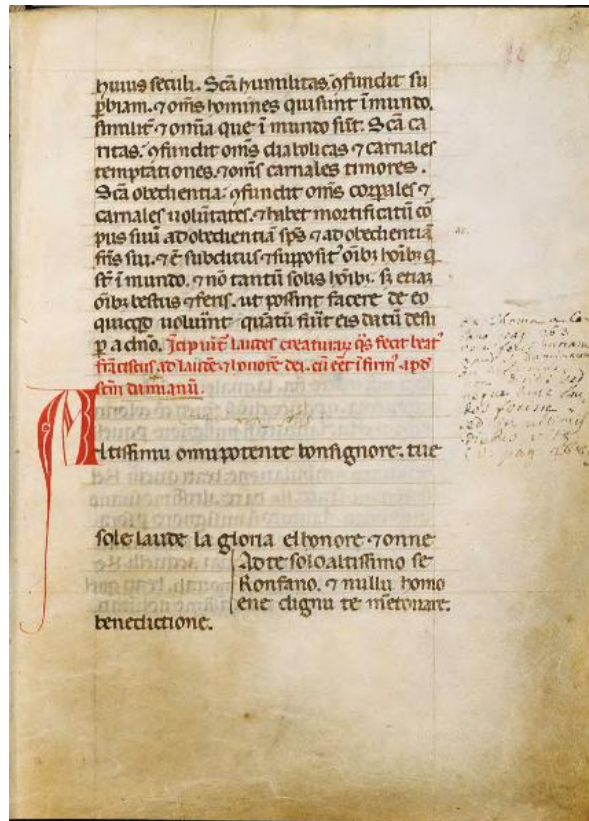 huius seculi. Scā humilitas ꝯfundit su
ꝑbiam. ⁊ om̄s homines qui sunt ī mundo.
similit̄ ⁊ om̄ia que ī mundo sūt. Scā ca
ritas. ꝯfundit om̄s diabolicas ⁊ carnales
temptationes. ⁊ om̄s carnales timores.
Scā obedientia. ꝯfundit om̄s corꝑales ⁊
carnales uolūtates. ⁊ habet mortificatū cor
pus suū ad obedientiā sp̄s ⁊ ad obedientiā
fr̄is sui. ⁊ ē subditus ⁊ supposit᾽ oībꝫ hoībꝫ q̄
st̄ ī mundo. ⁊ nō tantū solis hoībꝫ. sꝫ etiaꝫ
oībꝫ bestiis ⁊ feris. ut possint facere de eo
quicqd uoluīnt quātū fūit eis datū desu
ꝑ a dn̄o. Īcip̄iūt laudes creaturaꝝ q̄s fecit beat᾽
frāciscus ad laudē ⁊ honorē dei. cū eēt ī firm᾽ apd
scm̄ damianū.
Altissimu omnipotente bonsignore. tue
sole laude la gloria elhonore ⁊ onne
Ad te solo altissimo se
Konfano. ⁊ nullu homo
ene dignu te mētouare.
benedictione.